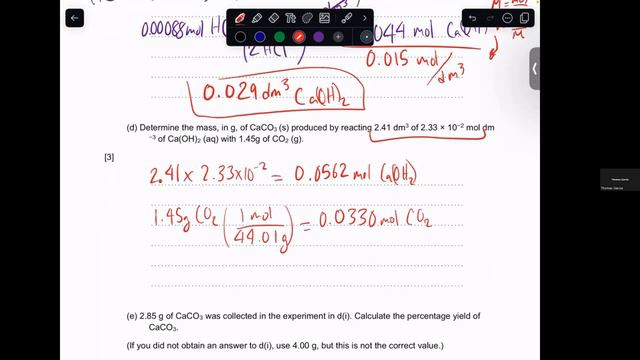 0.00088 mol H
(2HCl
044 mol Ca(OH)
0.015 mol/dm³
M = mol
0.029 dm³ Ca(OH)₂
(d) Determine the mass, in g, of CaCO₃ (s) produced by reacting 2.41 dm³ of 2.33 × 10⁻² mol dm
⁻³ of Ca(OH)₂ (aq) with 1.45g of CO₂ (g).
[3]
2.41 × 2.33×10⁻² = 0.0562 mol Ca(OH)₂
1.45g CO₂ (1 mol/44.01g) = 0.0330 mol CO₂
(e) 2.85 g of CaCO₃ was collected in the experiment in d(i). Calculate the percentage yield of
CaCO₃.
(If you did not obtain an answer to d(i), use 4.00 g, but this is not the correct value.)
Thomas Garcia
Thomas Garcia